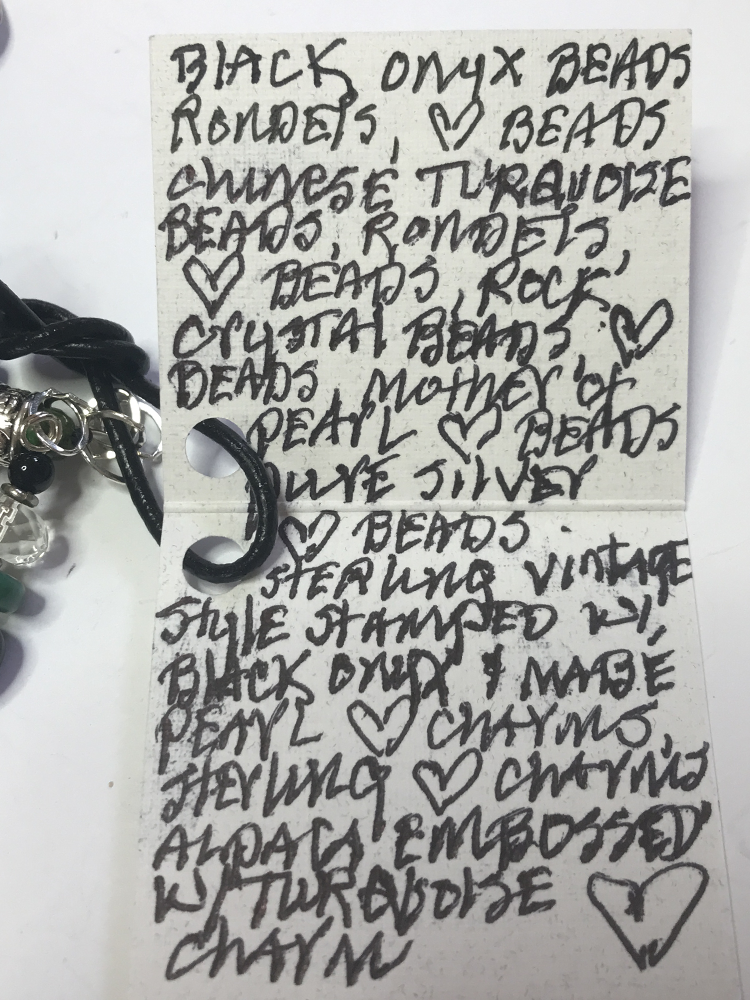 BLACK ONYX BEADS
RONDELS, ♡ BEADS
CHINESE TURQUOISE
BEADS, RONDELS,
♡ BEADS, ROCK
CRYSTAL BEADS, ♡
BEADS MOTHER OF
PEARL ♡ BEADS
PURE SILVER
♡ BEADS
STERLING VINTAGE
STYLE STAMPED W/
BLACK ONYX & MABE
PEARL ♡ CHARMS,
STERLING ♡ CHARMS
ALPACA EMBOSSED
W/ TURQUOISE ♡
CHARM